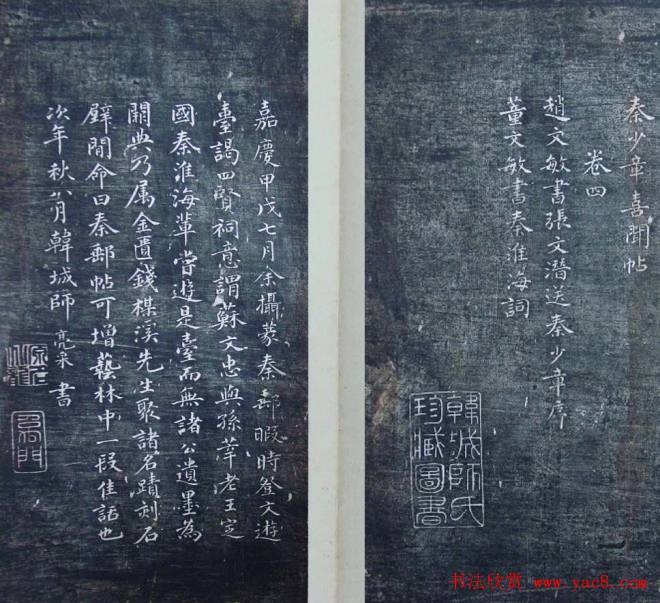 秦少章喜聞帖
卷四
趙文敏書張文潛送秦少章序
董文敏書秦淮海詞
韓城師氏
珍臧圖書
嘉慶甲戌七月余攝篆秦郵暇時登文遊
臺謁四賢祠意謂蘇文忠與孫莘老王定
國秦淮海輩嘗遊是臺而無諸公遺墨為
闕典乃属金匱錢楳溪先生聚諸名蹟刻石
壁間命曰秦郵帖可增藝林中一段佳話也
次年秋八月韓城師亮采書
书法欣赏 www.yac8.com